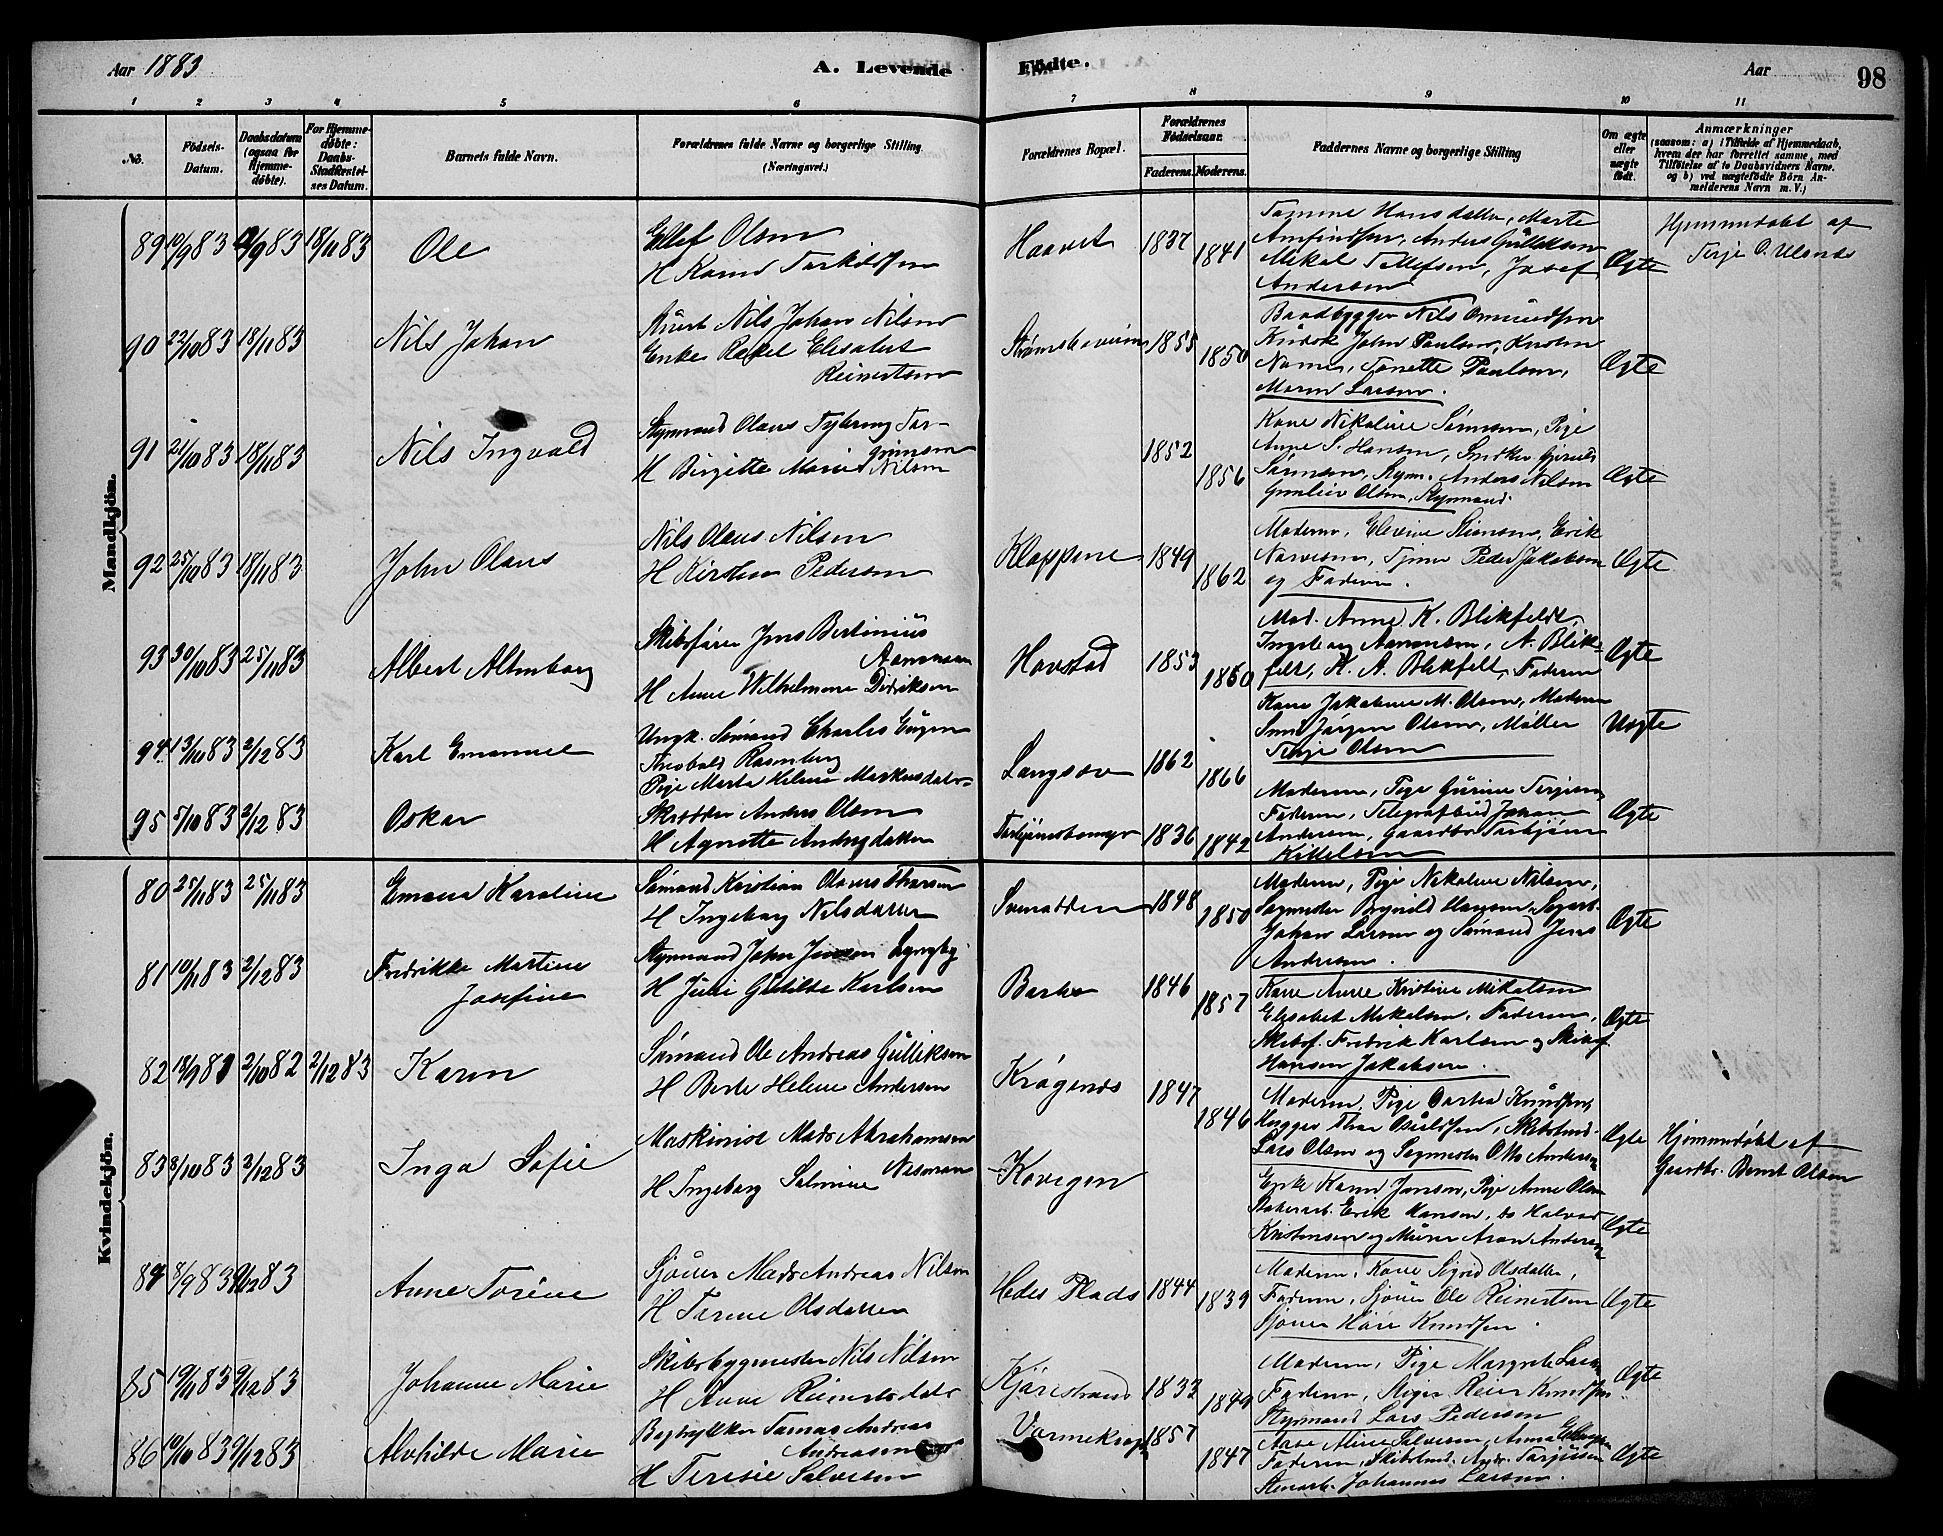 Aar 1883
A. Levende
Födte.
Aar
98
1 2 3 4 5 6 7 8 9 10 11
No.
Födsels-Datum.
Daabsdatum (ogsaa for Hjemme-döbte).
For Hjemme-döbte: Daabs-Stadfæstel-ses Datum.
Barnets fulde Navn.
Forældrenes fulde Navne og borgerlige Stilling (Næringsvei.)
Forældrenes Bopæl.
Forældrenes Födselsaar.
Faderens. Moderens.
Faddernes Navne og borgerlige Stilling
Om ægte eller uægte født.
Anmærkninger
(saasom: a) i Tilfælde af Hjemmedaab, hvem der har forrettet samme, med Tilföielse af to Daabsvidners Navne, og b) ved uægtefödte Börn Anmelderens Navn m. V.)
Mandkjön.
89 10/9 83 9/9 83 18/11 83 Ole
Ellef Olsen
H Karen Tarkildsen
Haavet 1837 1841
Tomine Hansdatter, Marte
Amfindsen, Anders Gulliksen
Mikal Tellefsen, Josef
Andersen
Ægte
Hjemmedøbt af
Terje O. Ulsnes
90 22/10 83 18/11 83 Nils Johan
Nils Johan Nilsen
Enke Rakel Elisabet
Reinertsen
1855 1850
Baadbygger Nils Omundsen
John Paulsen, Kirsten
Tonette Paulsen,
Maren Larsen.
Ægte
91 21/10 83 18/11 83 Nils Ingvald
Styrmand Olaus Tybring Tor-
grimsen
H Birgitte Marie Nilsen
1852 1856
Kone Nikoline Sørensen, Pige
Anne S. Hansen, Snedker
Sørensen, Anders Nilsen
Gunleiv Olsen, Styrmand.
Ægte
92 25/10 83 18/11 83 John Olaus
Nils Olaus Nilsen
H Kirsten Pedersen
Kloppene 1849 1862
Moderen, Elevine Stiansen, Erik
Narvesen, Peder Jakobsen
og Faderen.
Ægte
93 30/10 83 25/11 83 Albert Altenborg
Skibsfører Jens Bertinius
Aanensen
H Anne Wilhelmine Didriksen
Havstad 1853 1860
Mad. Anne K. Blikfeldt,
Ingeborg Aanensen, A. Blik-
felt, H. A. Blikfelt, Faderen
Ægte
94 13/10 83 2/12 83 Karl Emanuel
Ungk. Sømand Charles Eugen
Theobald Rosenberg
Pige Marta Helene Markusdatter
Langsæv 1862 1866
Kone Jakobine M. Olsen, Moderen
Jørgen Olsen, Møller
Terje Olsen
Uægte
95 5/10 83 2/12 83 Oskar
Skrædder Anders Olsen
H Agnette Andersdatter
1836 1842
Moderen, Pige Gurine Terjesen,
Faderen, Telegrafbud Johan
Andersen, Gaardbr. Torbjørn
Kittelsen
Ægte
Kvindekjön.
80 25/11 83 25/11 83 Emma Karoline
Sømand Kristian Olaves Thorsen
H Ingeborg Nilsdatter
Svenodden 1848 1850
Moderen, Pige Nikoline Nilsen,
Sagmester Brynild Hansen,
Johan Larsen og Sømand Jens
Andersen.
Ægte
81 10/11 83 2/12 83 Fredrikke Martine
Josefine
Styrmand John Jensen Lyngby
H Juli Gutilde Karlsen
Barbo 1846 1857
Kone Anne Kristine Mikalsen
Elisabet Mikalsen, Faderen,
Skibsf. Fredrik Karlsen og Skibsf.
Hansen Jakobsen.
Ægte
82 18/9 81 2/10 82 2/12 83 Karen
Sømand Ole Andreas Gulliksen
H Berte Helene Andersen
Krøgenes 1847 1846
Moderen, Pige Knudsen,
Skibstmd.
Lars Olsen og Sagmester Otto Andersen
Ægte
Hjemmedøbt af
Gaardbr. Bernt Olsen
83 8/10 83 2/12 83 Inga Sofie
Maskinist Mads Abrahamsen
H Ingeborg Salmine
Kovegen
Enke Karen Jensen, Pige Anne Olsen
Erik Hansen, do Halvor
Kristensen og Murer Aron Andersen
Ægte
84 8/9 83 9/12 83 Anne Torine
Sjømn Mads Andreas Nilsen
H Terene Olsdatter
Hedes Plads 1844 1839
Moderen, Kone Sigrid Olsdatter,
Faderen, Ole Reinertsen
Knudsen.
Ægte
85 19/11 83 9/12 83 Johanne Marie
Skibsbygmester Nils Nilsen
H Anne Reinertsdatter
Kjørestrand 1832 1849
Moderen, Pige Margrete Larsen
Faderen, Reier Knudsen
Styrmand Lars Pedersen
Ægte
86 19/10 83 9/12 83 Alvhilde Marie
Bogtrykker Tomas Andreas
Andreassen
H Teresie Salvesen
Vormekrog 1857 1847
Aase Aline Salvesen, Anna
Faderen, Skibstmd. Andr. Terjussen
Stenarb. Johannes Larsen.
Ægte